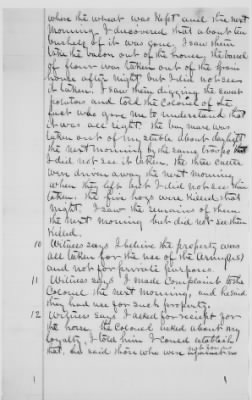 where the wheat was kept and the next
morning I discovered that about ten
bushels of it was gone. I saw them
take the bacon out of the house, the barrel
of flour was taken out of the
house after night but I did not see
it taken. I saw them digging the sweet
potatoes and told the Colonel of the
fact who gave me to understand that
it was all right. The bay mare was
taken out of my stable about daylight
the next morning by the same troops but
I did not see it taken. the three cattle
were driven away the next morning
when they left but I did not see them
taken, the five hogs were killed that
night I saw the remains of them
the next morning but did not see them
killed.
10 Witness says I believe the property was
all taken for the use of the Army (U.S)
and not for private purposes.
11 Witness says I made Complaint to the
Colonel the next morning, and he said
they had use for such property.
12 Witness says I asked for receipt for
the horse, the Colonel asked about my
loyalty, I told him I could establish
that, he said those who were not